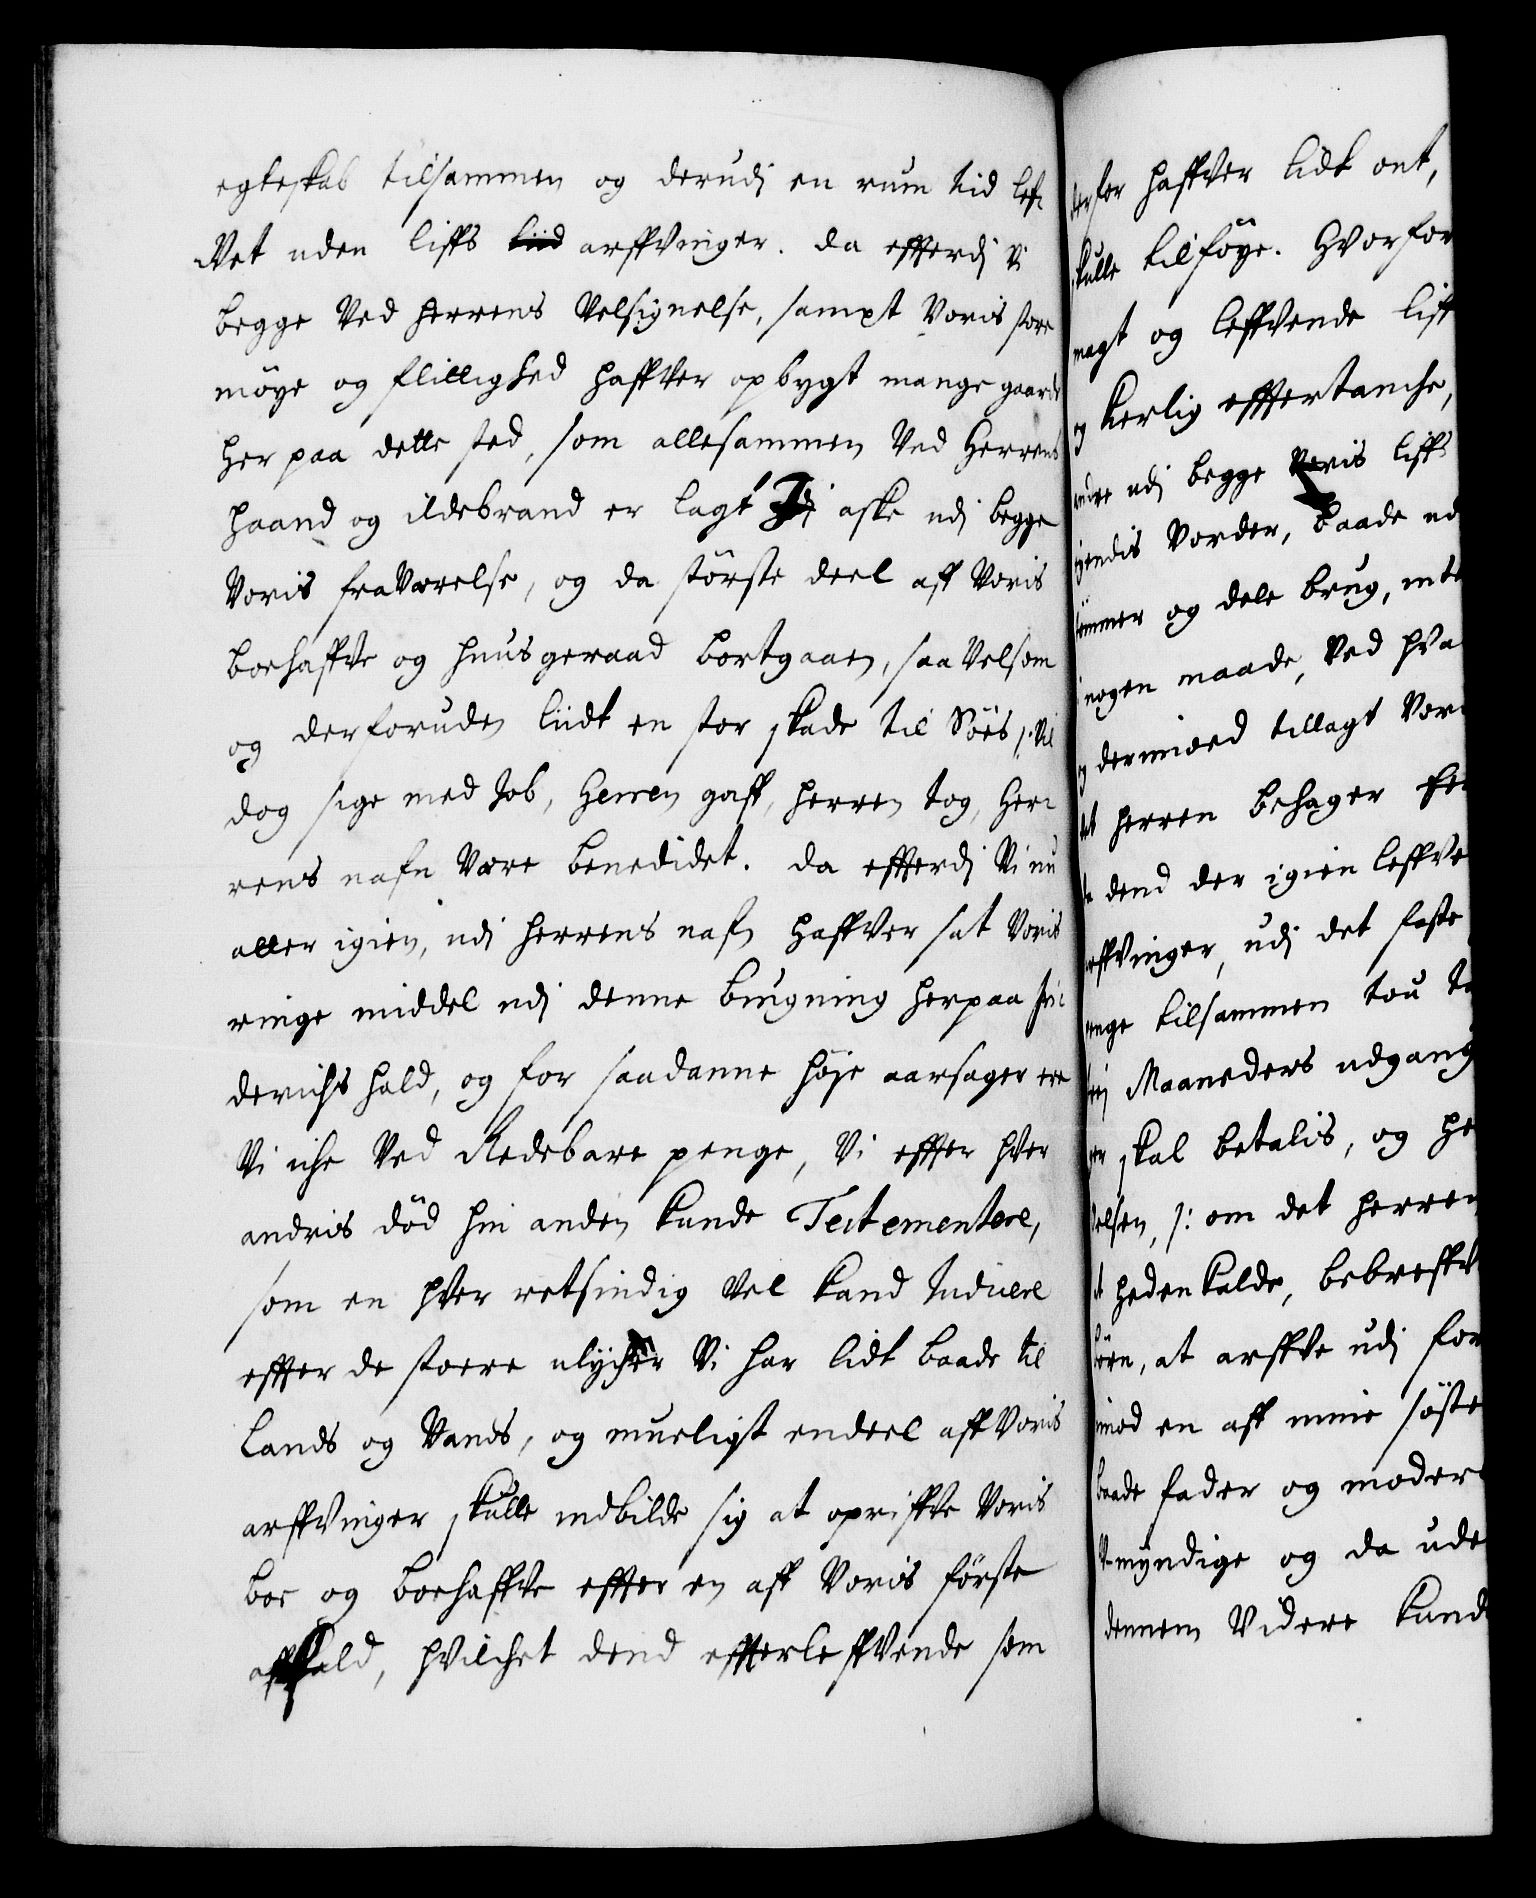 egteskab tilsammen og derudj en rum tid lef-
Vet uden liffs liid arffvinger. da efferdj Vi
begge Ved herrens Velsignelse, sampt Voris store
möye og flillighed haffver opbygt mange gaarde
her paa dette sted, som allesammen Ved Herrens
haand og ildebrand er lagt Udj aske udj begge
Voris fraVærelse, og da störste deel aff Voris
boehaffve og huusgeraad bortgaaen, saaVelsom
og derforuden liidt en stor skade til Söes /: Vil
dog sige med Job, Herren gaff, herren tog, Her-
rens nafn Være benedidet. da efferdj Vi nu
aller igien, udj herrens nafn haffver sat Voris
ringe middel udj denne bugning herpaa fri-
derichs hald, og for saadanne höje aarsager ere
Vi iche Ved Redebare penge, Vi effter hver
andris död hin anden kunde Testementere,
som en hver retsindig Vel kand Judicere
effter de stoere ulycher Vi har lidt baade til
Lands og Vands, og mueligt endeel aff Voris
arffvinger skulle indbilde sig at opriffve Voris
boe og boehaffve effter en aff Voris förste
affald, hvilchet dend efferleffvende som
derfor haffver lidt ont,
skulle tilföye. Hvorfor
magt og leffvende liff
og kerlig efftertanche,
andre udj begge Voris liffs
Vorder, baade ud
og dele brug, inte
nogen maade, Ved hva
og dermed tillagt Vor
det herren behager
dend der igien leffve
arffvinger, udj det faste
penge tilsammen tou
Maaneders udgang
skal betalis, og he
/: om det herren
at hedenkalde, bebreffv
börn, at arffve udj for
imod en aff mine söste
baade fader og moder
myndige og da ude
dennem Videre kund